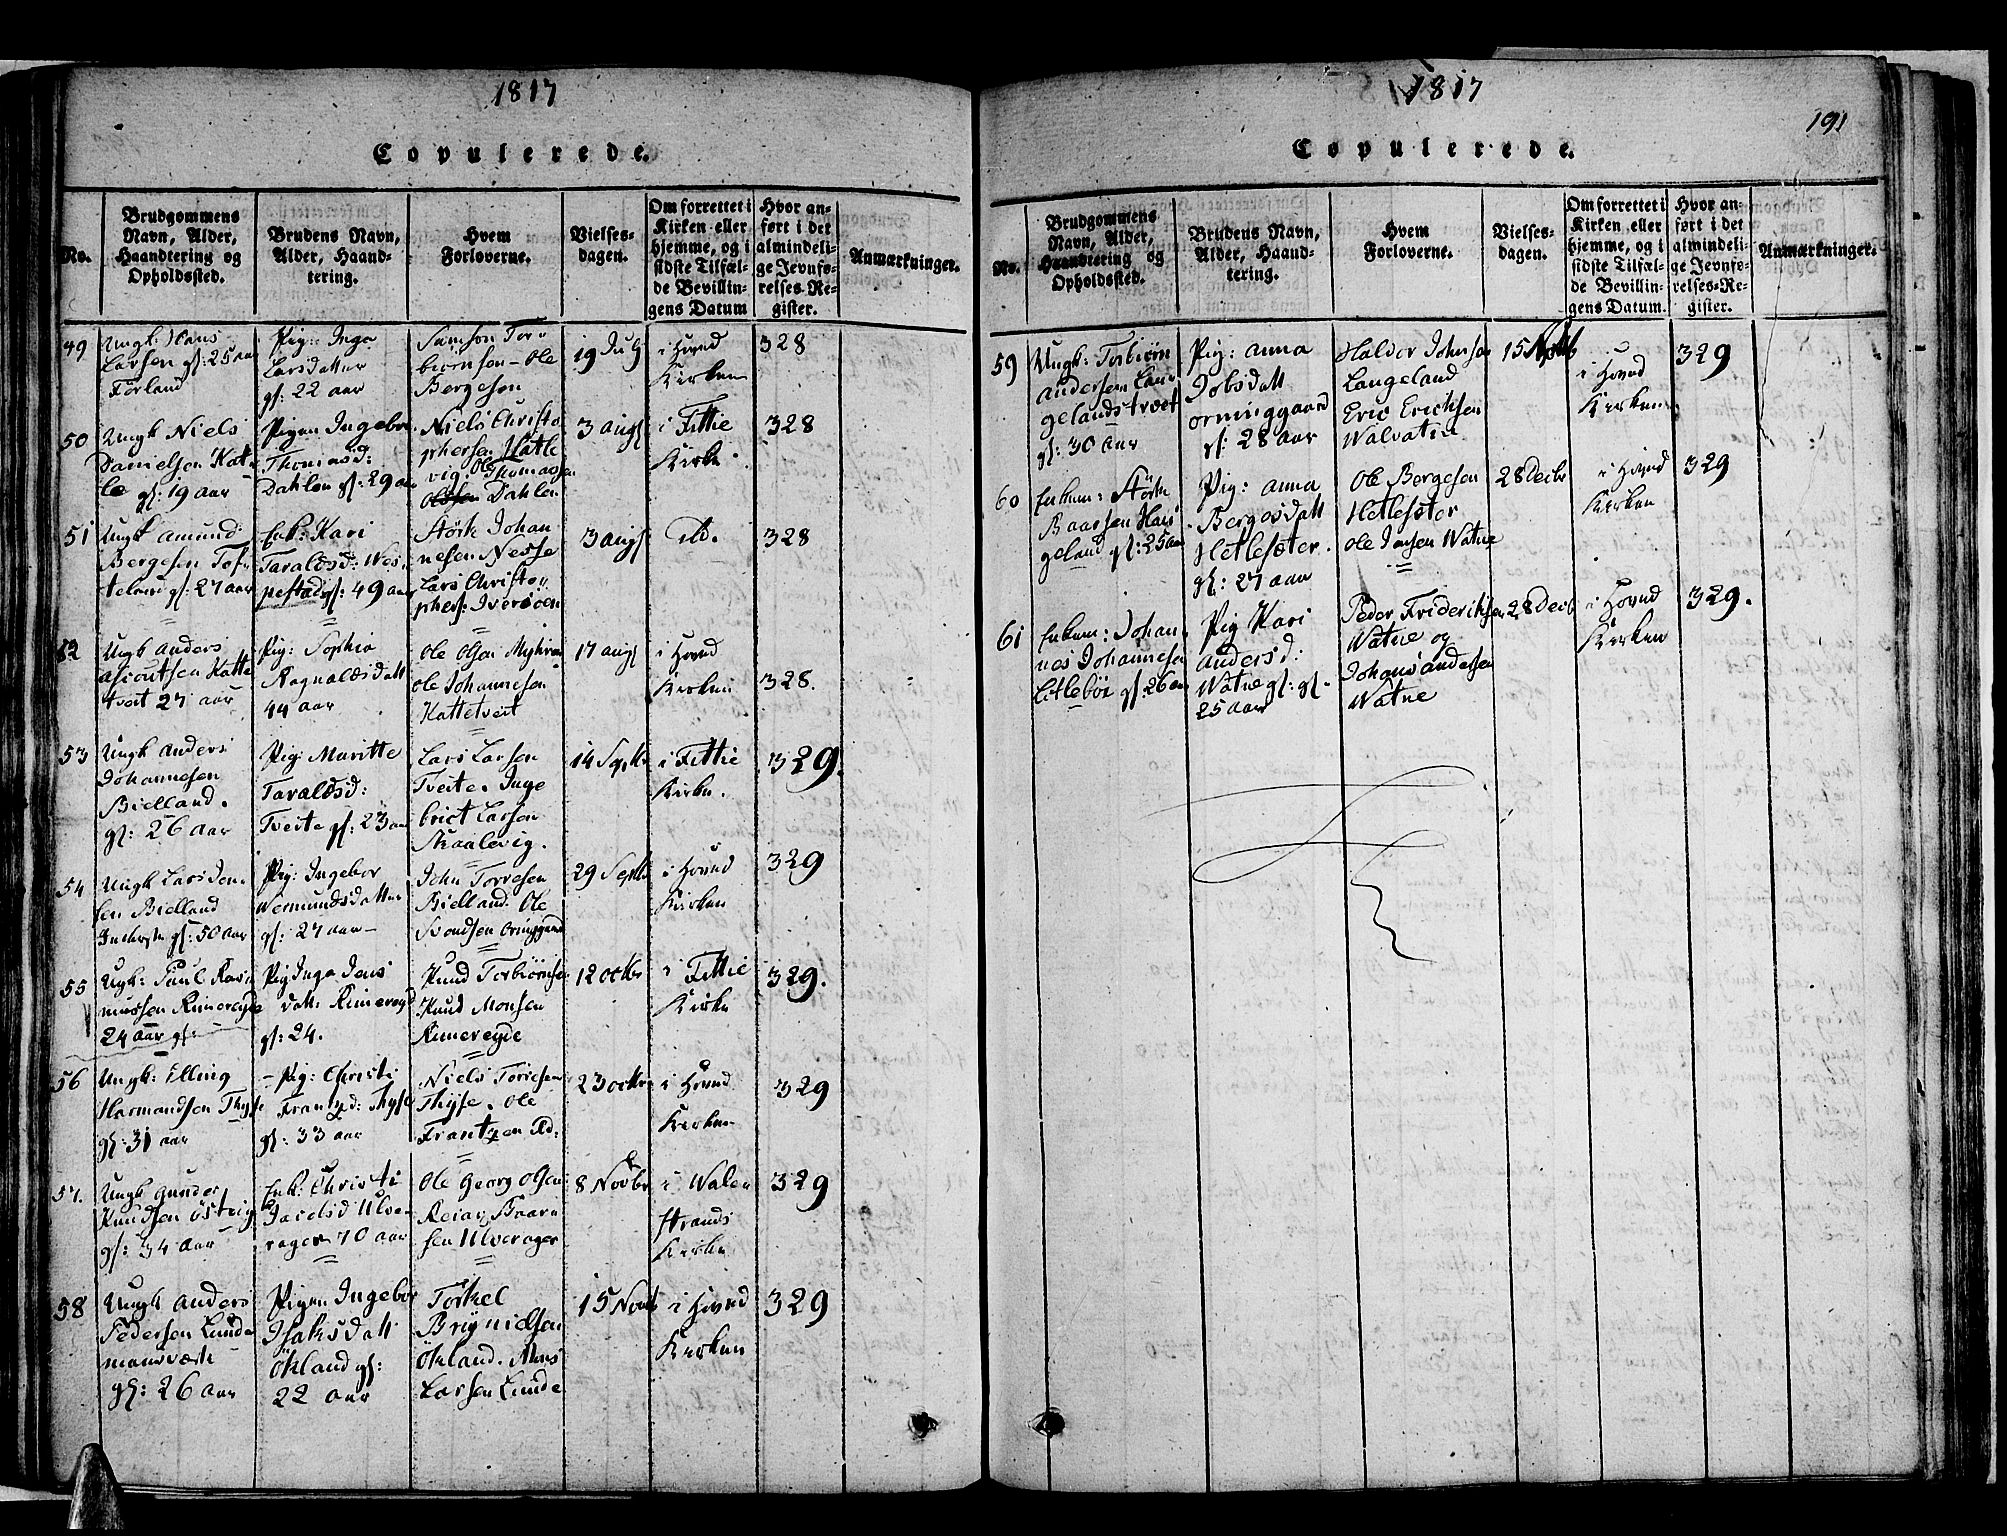 1817
Copulerede.
No.
Brudgommens
Navn, Alder,
Haandtering og
Opholdssted.
Brudens Navn,
Alder, Haand-
tering.
Hvem
Forloverne.
Vielses-
dagen.
Om forrettet i
Kirken eller
hjemme, og i
sidste Tilfæl-
de Bevillin-
gens Datum
Hvor an-
ført i det
almindeli-
ge Jevnfø-
relses-Re-
gister.
Anmærkninger.
49
Ungk: Hans
Larsen gl: 25 aar
Førland
Pig: Inga
Larsdatter
gl: 22 aar
Samson Tor-
biørnsen - Ole
Bergesen
19 July
i Hovud
Kirken
328
50
Ungk Niels
Danielsen Hat-
le gl: 19 aar
Pigen Ingebor
Thomasd:
Dahlen gl: 29 aar
Niels Christo
phersen Hatle
vig. Ole Thomassen
Dahlen
3 aug
i Fittie
Kirke
328
51
Ungk Amund
Bergesen Tof-
teland gl: 27 aar
Enk: Kari
Taraldsd: Wes-
pestad gl: 49 aar
Størk Johan
nesen Nesse
Lars Christo-
phers: Iversøen
3 aug
do.
328
52
Ungk Anders
Asioutsen Katte
tveit 27 aar
Pig: Sophia
Ragnaldsdatt
44 aar
Ole Olsen Myhren
Ole Johannesen
Kattetveit
17 aug
i Hovud
Kirken
328.
53
Ungk Anders
Johannesen
Bielland.
gl: 26 aar
Pig: Maritte
Taraldsd:
Tveite gl: 23 aar
Lars Larsen
Tveite. Inge
brict Larsen
Skaalevig.
14 Septbr
i Fittie
Kirke.
329.
54
Ungk Lars Jen-
sen Bielland
gl: 50 aar
Pig: Ingebor
Wemundsdatter
gl: 27 aar -
John Torresen
Bielland. Ole
Svendsen Orninggaard
29 Septbr
i Hovud
Kirken
329
55
Ungk: Paul Ras-
mussen Rimereyde
24 aar gl:
Pig Inga Jens
datt: Rimereyd
gl: 24.
Knud Torbiørnsen
Knud Monsen
Rimereyde
12 octbr
i Fittie
Kirke
329.
56
Ungk: Elling
Harmandsen Thyse
gl: 31 aar
- Pig: Christi
Frantzd: Thyse
gl: 33 aar
Niels Toriesen
Thyse. Ole
Frantzen Ad:
23 octbr
i Hovud
Kirken
329
57.
Ungk Gunder
Knudsen Østvig
gl: 34 aar
Enk: Christi
Ulve-
rager 70 aar
Ole Georg Olsen
Reiar Baar-
sen Ulverager
8 Novbr
i Walen
Strands
Kirke
329
58
Ungk Anders
Pedersen Lunde
mansverk
gl: 26 aar
Pigen Ingebor
Isaksdatt
Økland gl:
22 aar
Torkel
Brynielsen
Økland. Mons
Larsen Lunde
15 Novbr
i Hovud
Kirken
329
1817
191
Copulerede.
No.
Brudgommens
Navn, Alder,
Haandtering og
Opholdssted.
Brudens Navn,
Alder, Haand-
tering.
Hvem
Forloverne.
Vielses-
dagen.
Om forrettet i
Kirken eller
hjemme, og i
sidste Tilfæl-
de Bevillin-
gens Datum.
Hvor an-
ført i det
almindeli-
ge Jevnfø-
relses-Re-
gister.
Anmærkninger.
59
Ungk: Torbiørn
Andersen Lan-
gelandstræet
gl: 30 aar
Pig: Anna
Jobsdatt
Orninggaard
gl: 28 aar
Haldor Johnsen
Langeland
Eric Ericksen
Walvatne
15 Novbr
i Hovud
Kirken
329
60
Enkem: Størk
Baarsen Hauge
land gl: 25 aar
Pig: Anna
Bergesdatt
Hetlesæter.
gl: 27 aar
Ole Bergesen
Hetlesæter
Ole Jensen Watne
28 Decbr
i Hovud
Kirken
329
61
Enkem: Johan-
nes Johannesen
Litlebøe gl: 26 aar
Pig Kari
Andersd:
Watne gl: gl-
25 aar
Peder Friderichsen
Watne og
Johans Andersen
Watne
28 Decbr
i Hovud
Kirken
329.